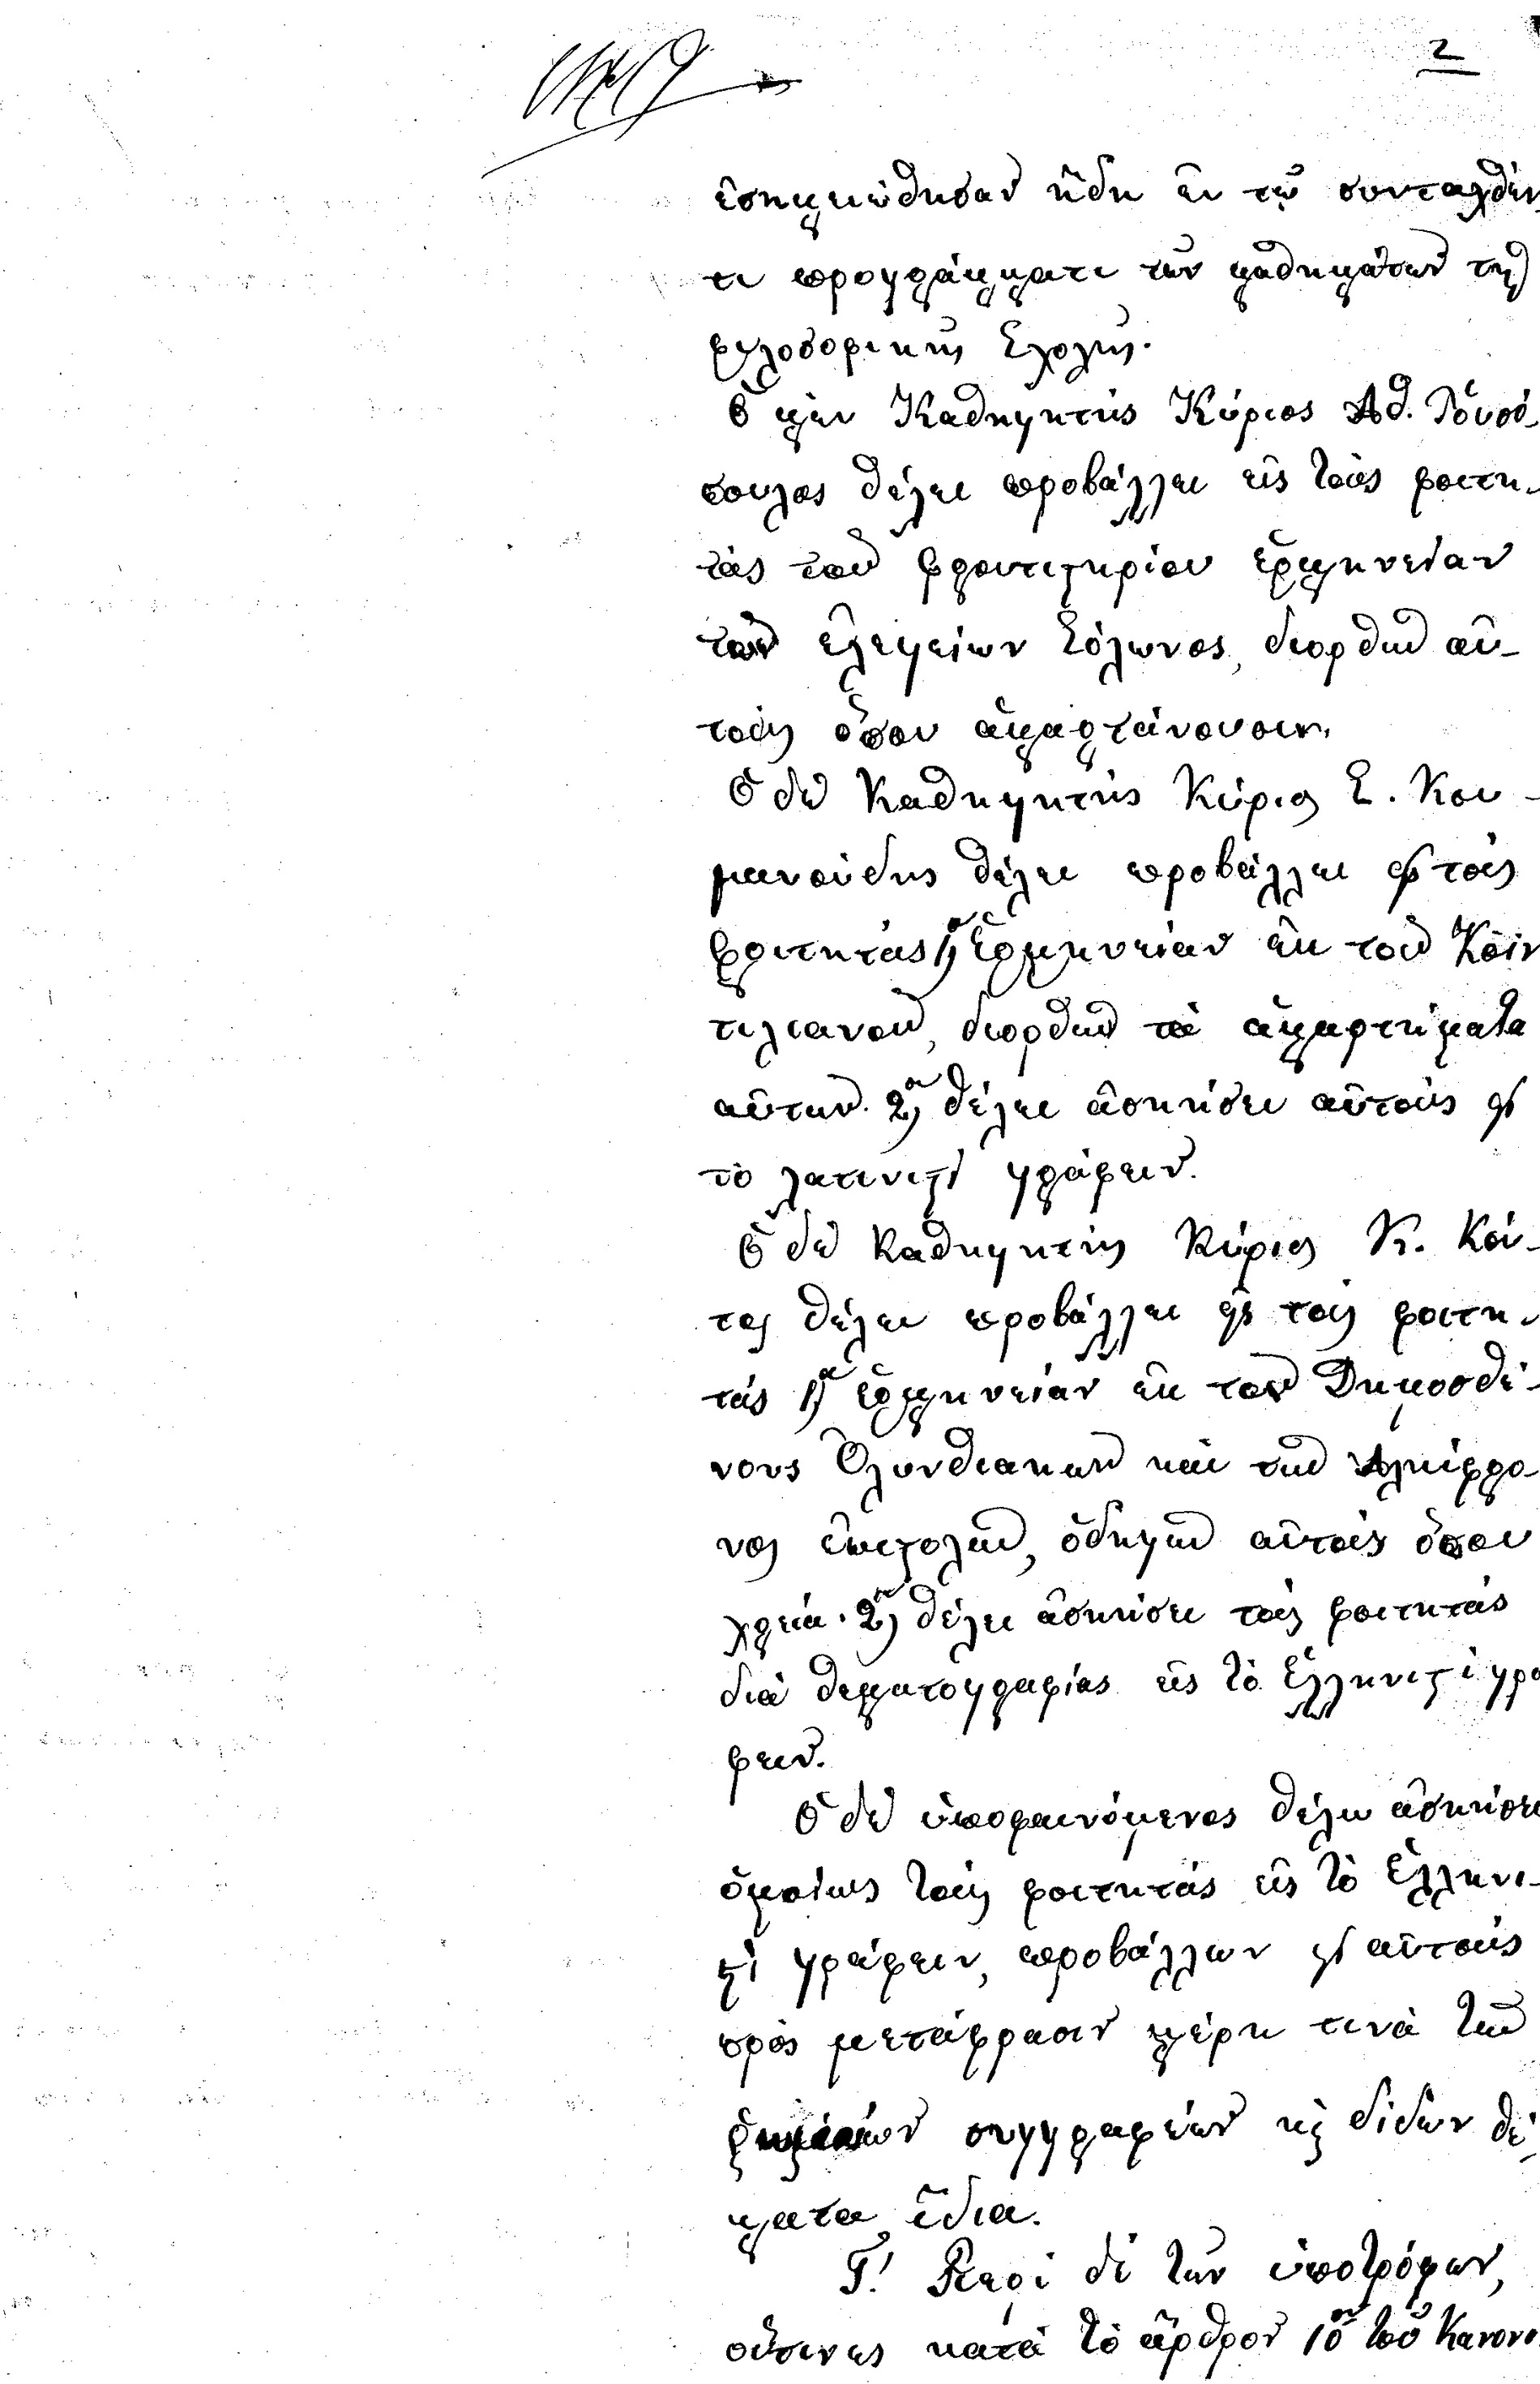 2
ἐσημειώθησαν ἤδη ἐν τῷ συνταχθέν
τι προγράμματι τῶν μαθημάτων τῆς
φιλοσοφικῆς Σχολῆς.
Ὁ μὲν Καθηγητὴς Κύριος Ἀθ. Ῥουσό-
πουλος θέλει προβάλλει εἰς τοὺς φοιτη-
τὰς τοῦ φροντιστηρίου ἑρμηνείαν
τῶν ἐλεγείων Σόλωνος, διορθῶν αὐ-
τοὺς ὅπου ἁμαρτάνουσιν.
Ὁ δὲ Καθηγητὴς Κύριος Σ. Κου-
μανούδης θέλει προβάλλει εἰς τοὺς
φοιτητὰς 1)ον ἑρμηνείαν ἐκ τοῦ Κοϊν
τιλιανοῦ, διορθῶν τὰ ἁμαρτήματα
αὐτῶν. 2)ον θέλει ἀσκήσει αὐτοὺς εἰς
τὸ λατινιστὶ γράφειν.
Ὁ δὲ Καθηγητὴς Κύριος Κ. Κόν-
τος θέλει προβάλλει εἰς τοὺς φοιτη-
τὰς 1)ον ἑρμηνείαν ἐκ τῶν Δημοσθέ-
νους Ὀλυνθιακῶν καὶ τῶν Ἀλκίφρο-
νος ἐπιστολῶν, ὁδηγῶν αὐτοὺς ὅπου
χρεία. 2)ον θέλει ἀσκήσει τοὺς φοιτητὰς
διὰ θεματογραφίας εἰς τὸ Ἑλληνιστὶ γρά
φειν.
Ὁ δὲ ὑποφαινόμενος θέλω ἀσκήσει
ὁμοίως τοὺς φοιτητὰς εἰς τὸ Ἑλληνι-
στὶ γράφειν, προβάλλων εἰς αὐτοὺς
πρὸς μετάφρασιν μέρη τινὰ τῶν
συγγραφέων κ διδων θέ-
ματα ἴδια.
Γ.' Περὶ δὲ τῶν ὑποτρόφων,
οἵτινες κατὰ τὸ ἄρθρον 10ον τοῦ Κανονι